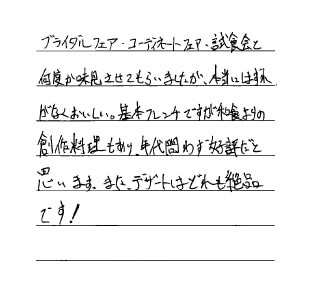 ブライダルフェア・コーディネートフェア・試食会と
何度か味見させてもらいましたが、本当にはずれ
がなくおいしい。基本フレンチですが和食よりの
創作料理もあり、年代問わず好評だと
思います。また、デザートはどれも絶品
です！